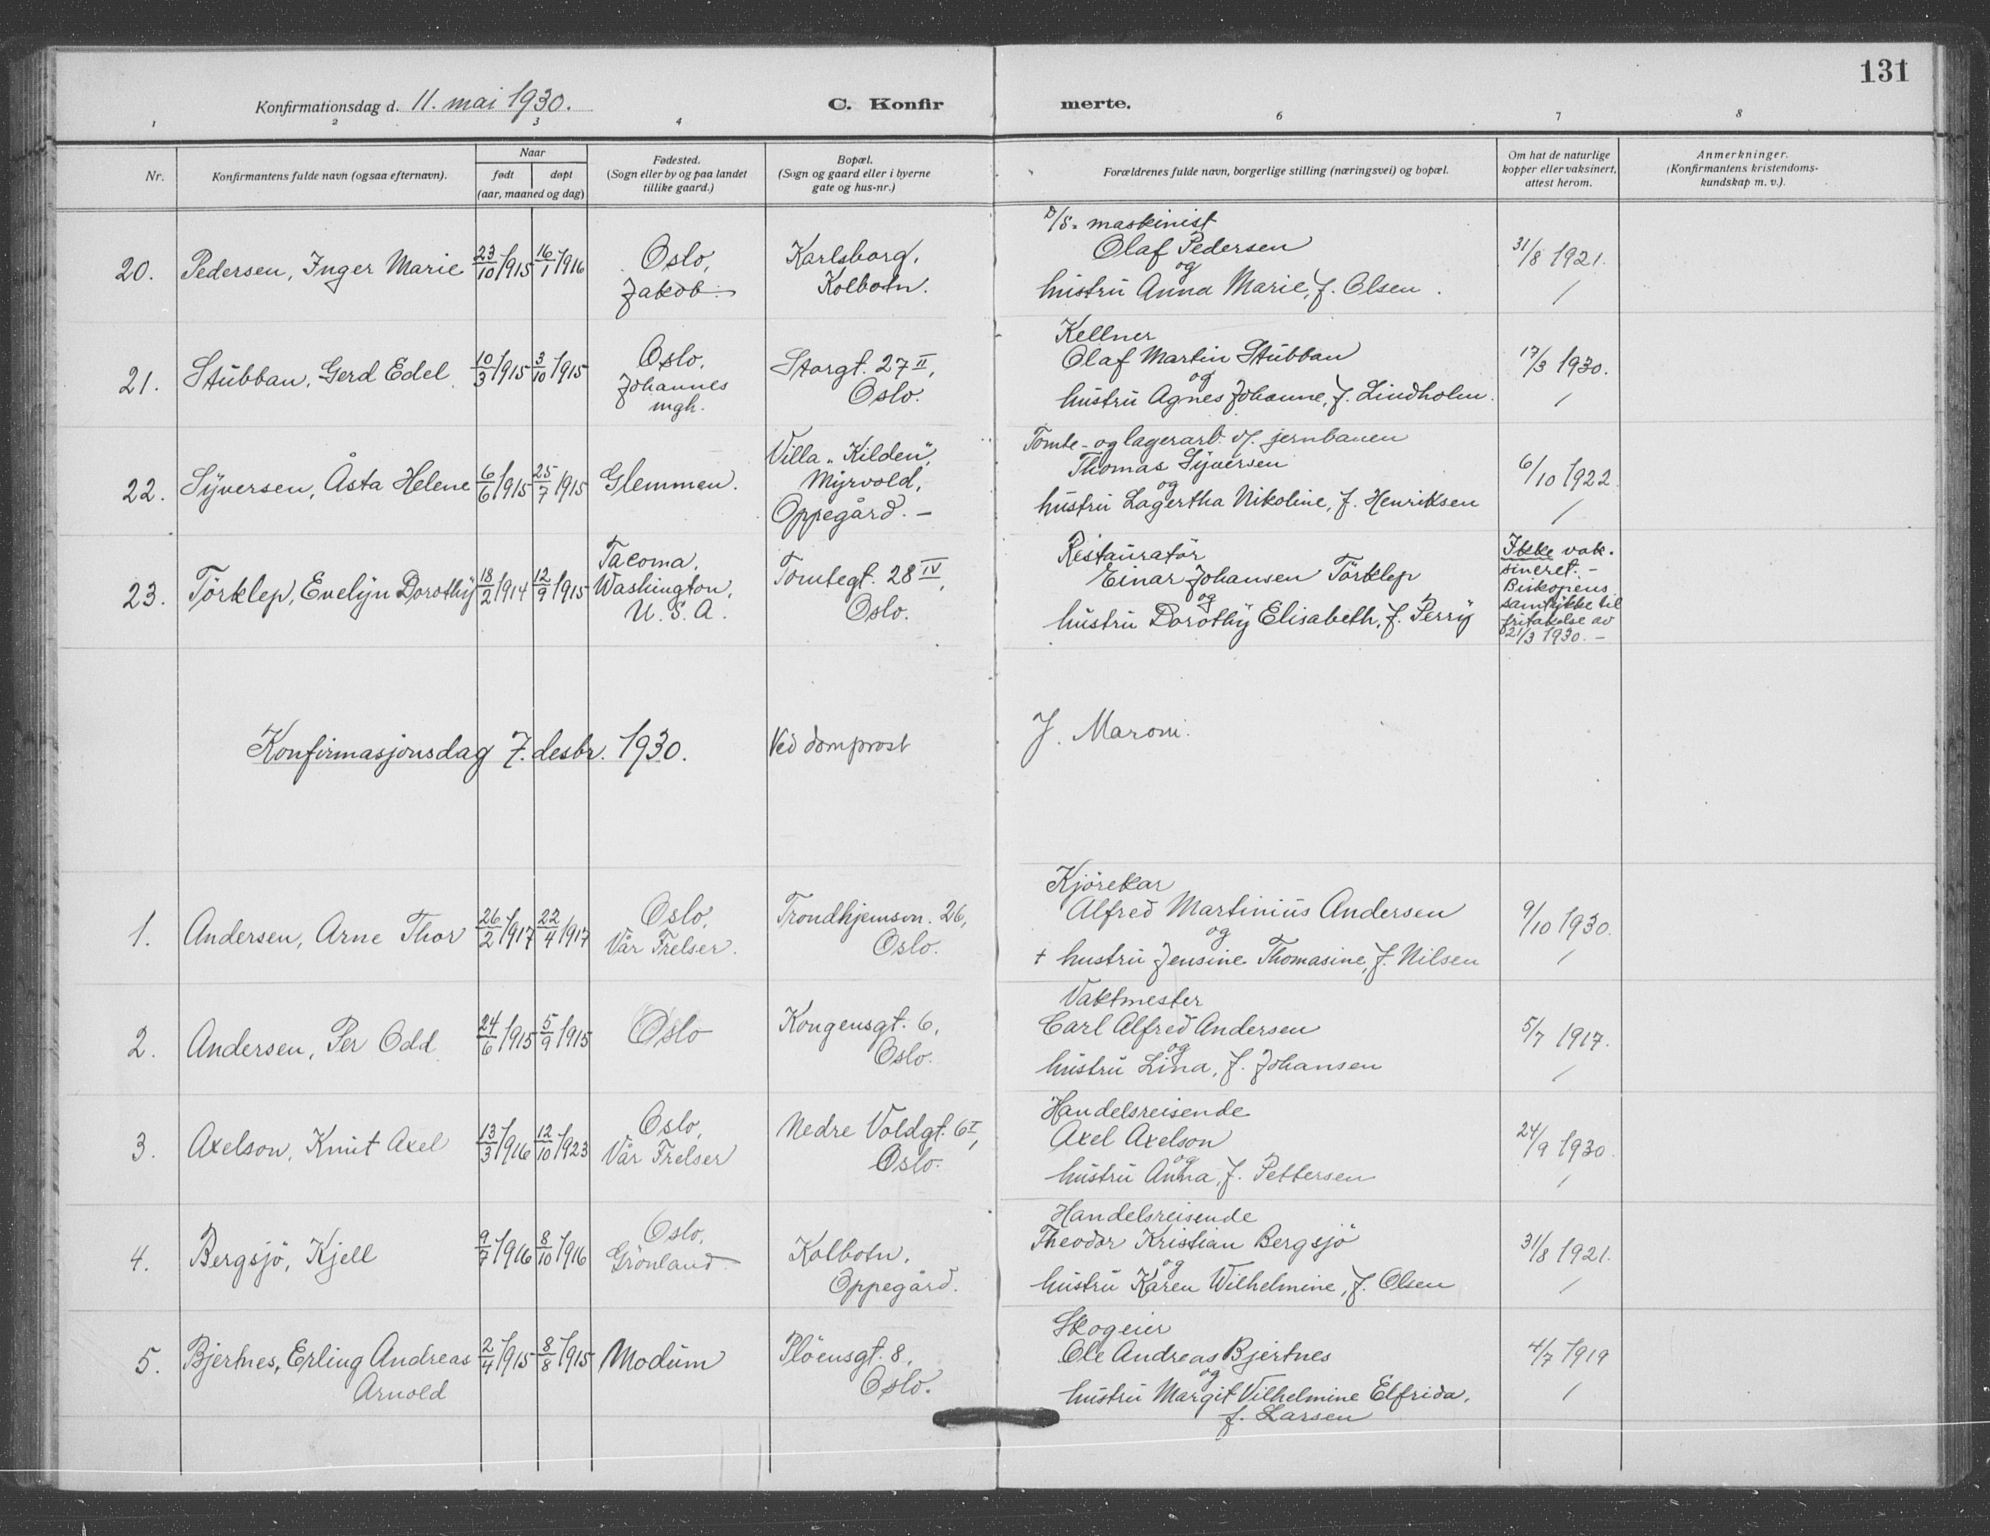 131
Konfirmationsdag d. 11. mai 1930.
C. Konfirmerte.
1 2 3 4 6 7 8
Nr.
Konfirmantens fulde navn (ogsaa efternavn).
Naar
født
døpt
(aar, maaned og dag)
Fødested.
(Sogn eller by og paa landet
tillike gaard.)
Bopæl.
(Sogn og gaard eller i byerne
gate og hus-nr.)
Forældrenes fulde navn, borgerlige stilling (næringsvei) og bopæl.
Om hat de naturlige
kopper eller vaksinert,
attest herom.
Anmerkninger.
(Konfirmantens kristendoms-
kundskap m. v.).
20. Pedersen, Inger Marie 23/10 1915 16/1 1916
Oslo,
Jakob.
Karlsborg,
Kolbotn.
D/S. maskinist
Olaf Pedersen
og
hustru Anna Marie, f. Olsen.
31/8 1921.
/
21. Stubban, Gerd Edel 10/3 1915 3/10 1915
Oslo,
Johannes
mgh.
Storgt. 27 II,
Oslo.
Kellner
Olaf Martin Stubban
og
hustru Agnes Johanne, f. Lindholm.
17/3 1930.
/
22. Syversen, Åsta Helene 6/6 1915 25/7 1915
Glemmen.
Villa „Kilden",
Myrvold,
Oppegård. –
Tomte- og lagerarb. v/ jernbanen
Thomas Syversen
og
hustru Lagertha Nikoline, f. Henriksen
6/10 1922.
/
23. Törklep, Evelyn Dorothy 18/2 1914 12/9 1915
Tacoma,
Washington,
U. S. A.
Tomtegt. 28 IV,
Oslo.
Restauratør
Einar Johansen Törklep
og
hustru Dorothy Elisabeth, f. Perry
Ikke vak-
sineret. –
Biskopens
samtykke til
fritakelse av
21/3 1930. –
Konfirmasjonsdag 7. desbr. 1930. Ved domprost J. Maroni.
1. Andersen, Arne Thor 26/2 1917 22/4 1917
Oslo,
Vår Frelser.
Trondhjemsvn. 26,
Oslo.
Kjörekar
Alfred Martinius Andersen
og
+ hustru Jensine Thomasine, f. Nilsen
9/10 1930.
/
2. Andersen, Per Odd 24/6 1915 5/9 1915
Oslo
Kongensgt. 6,
Oslo.
Vaktmester
Carl Alfred Andersen
og
hustru Lina, f. Johansen
5/7 1917.
/
3. Axelson, Knut Axel 13/3 1916 12/10 1923
Oslo,
Vår Frelser
Nedre Voldgt. 6 I,
Oslo.
Handelsreisende
Axel Axelson
og
hustru Anna, f. Pettersen
24/9 1930.
/
4. Bergsjö, Kjell 9/7 1916 8/10 1916
Oslo,
Grönland.
Kolbotn,
Oppegård.
Handelsreisende
Theodor Kristian Bergsjö
og
hustru Karen Wilhelmine, f. Olsen
31/8 1921.
/
5. Bjertnes, Erling Andreas 2/4 1915 8/8 1915
Arnold
Modum
Plöensgt. 8,
Oslo.
Skogeier
Ole Andreas Bjertnes
og
hustru Margit Vilhelmine Elfrida,
f. Larsen
4/7 1919
/